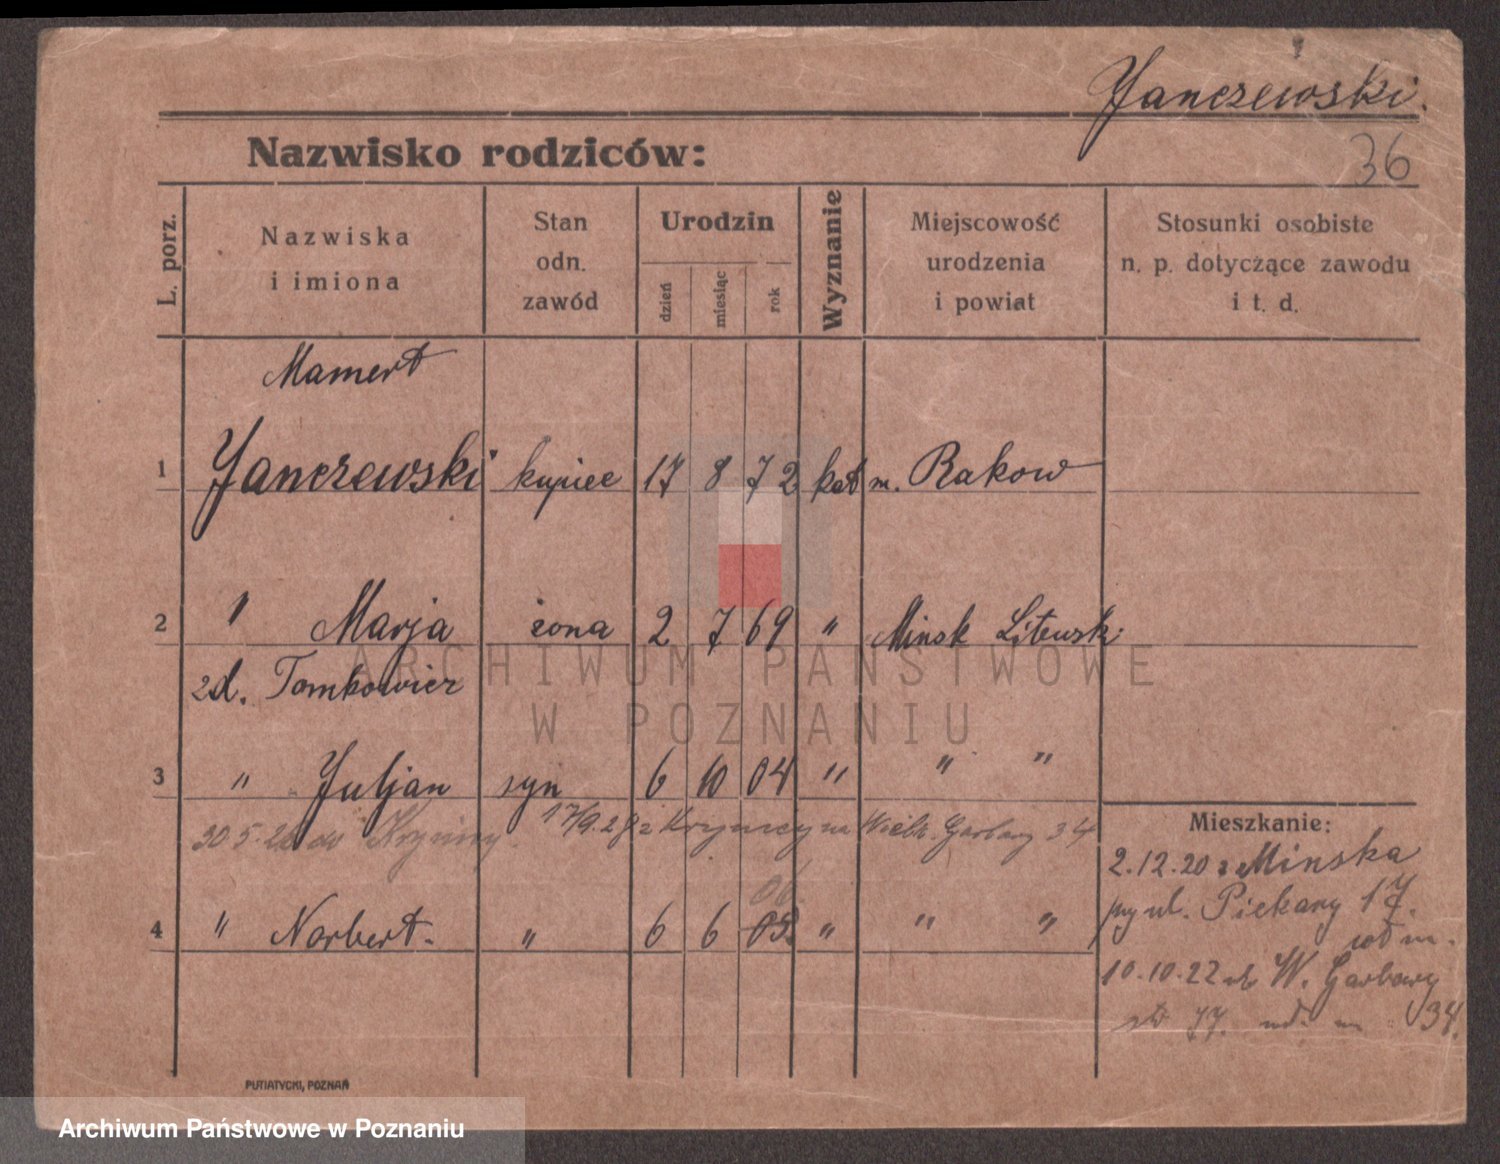 Janczewski.
Nazwisko rodziców:
36
L. porz.
Nazwiska
i imiona
Stan
odn.
zawód
Urodzin
dzień
miesiąc
rok
Wyznanie
Miejscowość
urodzenia
i powiat
Stosunki osobiste
n. p. dotyczące zawodu
i t. d.
Mamert
1 Janczewski kupiec 17 8 72 kat m. Rakow
2 " Marja żona 2 7 69 " Minsk Litewsk.
zd. Tomkowicz
3 " Juljan syn 6 10 04 " " "
30.5.28 do Krynicy. 17/9.28 z Krynicy na Wielk. Garbary 34
06.
4 " Norbert. " 6 6 05. " " "
Mieszkanie:
2.12.20 z Minska
przy ul. Piekary 17.
od m.
10.10.22 ul. W. Garbary
34.
PUTIATYCKI, POZNAŃ
ARCHIWUM PAŃSTWOWE
W POZNANIU
Archiwum Państwowe w Poznaniu